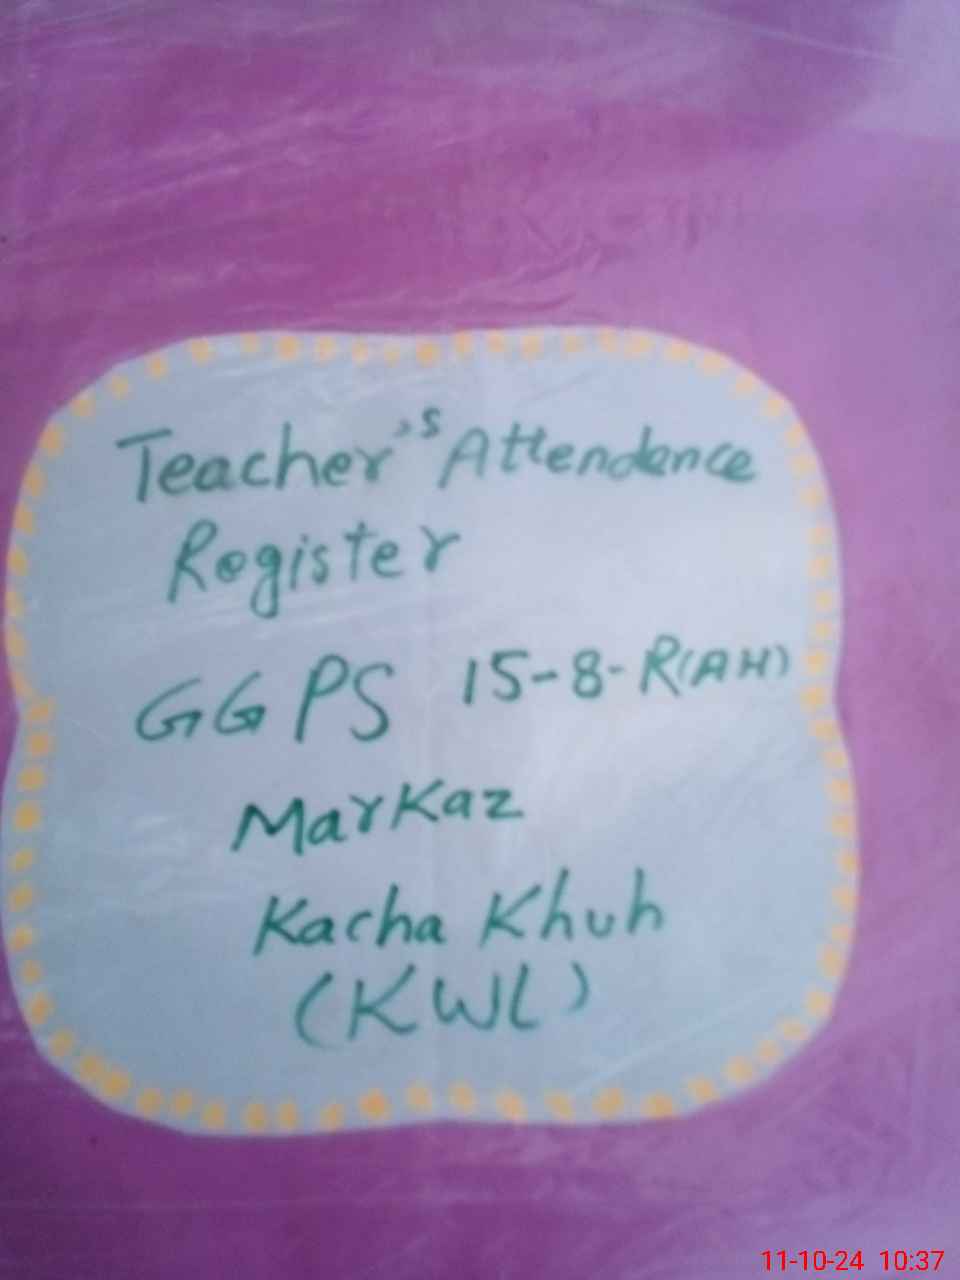 Teacher's Attendence
Register
GGPS 15-8-R(AH)
Markaz
Kacha Khuh
(KWL)
11-10-24 10:37